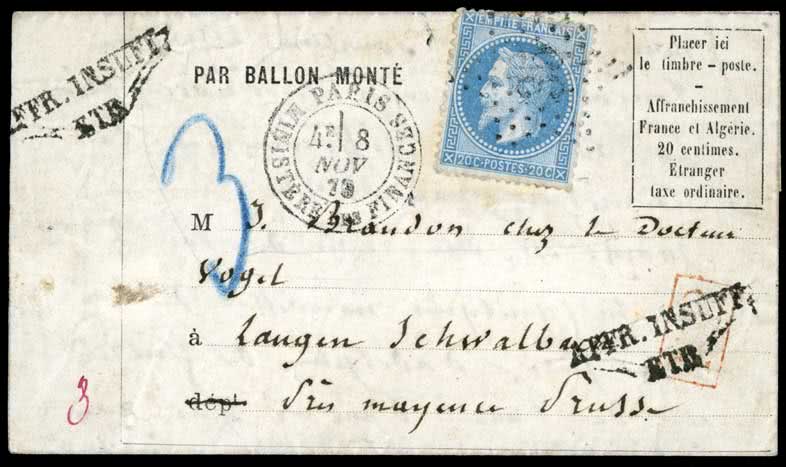 AFFR. INSUFF.
ETR.
PAR BALLON MONTÉ
PARIS
4E 8
NOV
MINISTÈRE DES FINANCES
EMPIRE FRANC
20C·POSTES·20C
Placer ici
le timbre-poste.
-
Affranchissement
France et Algérie.
20 centimes.
Étranger
taxe ordinaire.
3
M J. Brandon chez le Docteur
Vogel
à Langen Schwalbach
AFFR. INSUFF.
ETR.
dépt près mayence Prusse
3